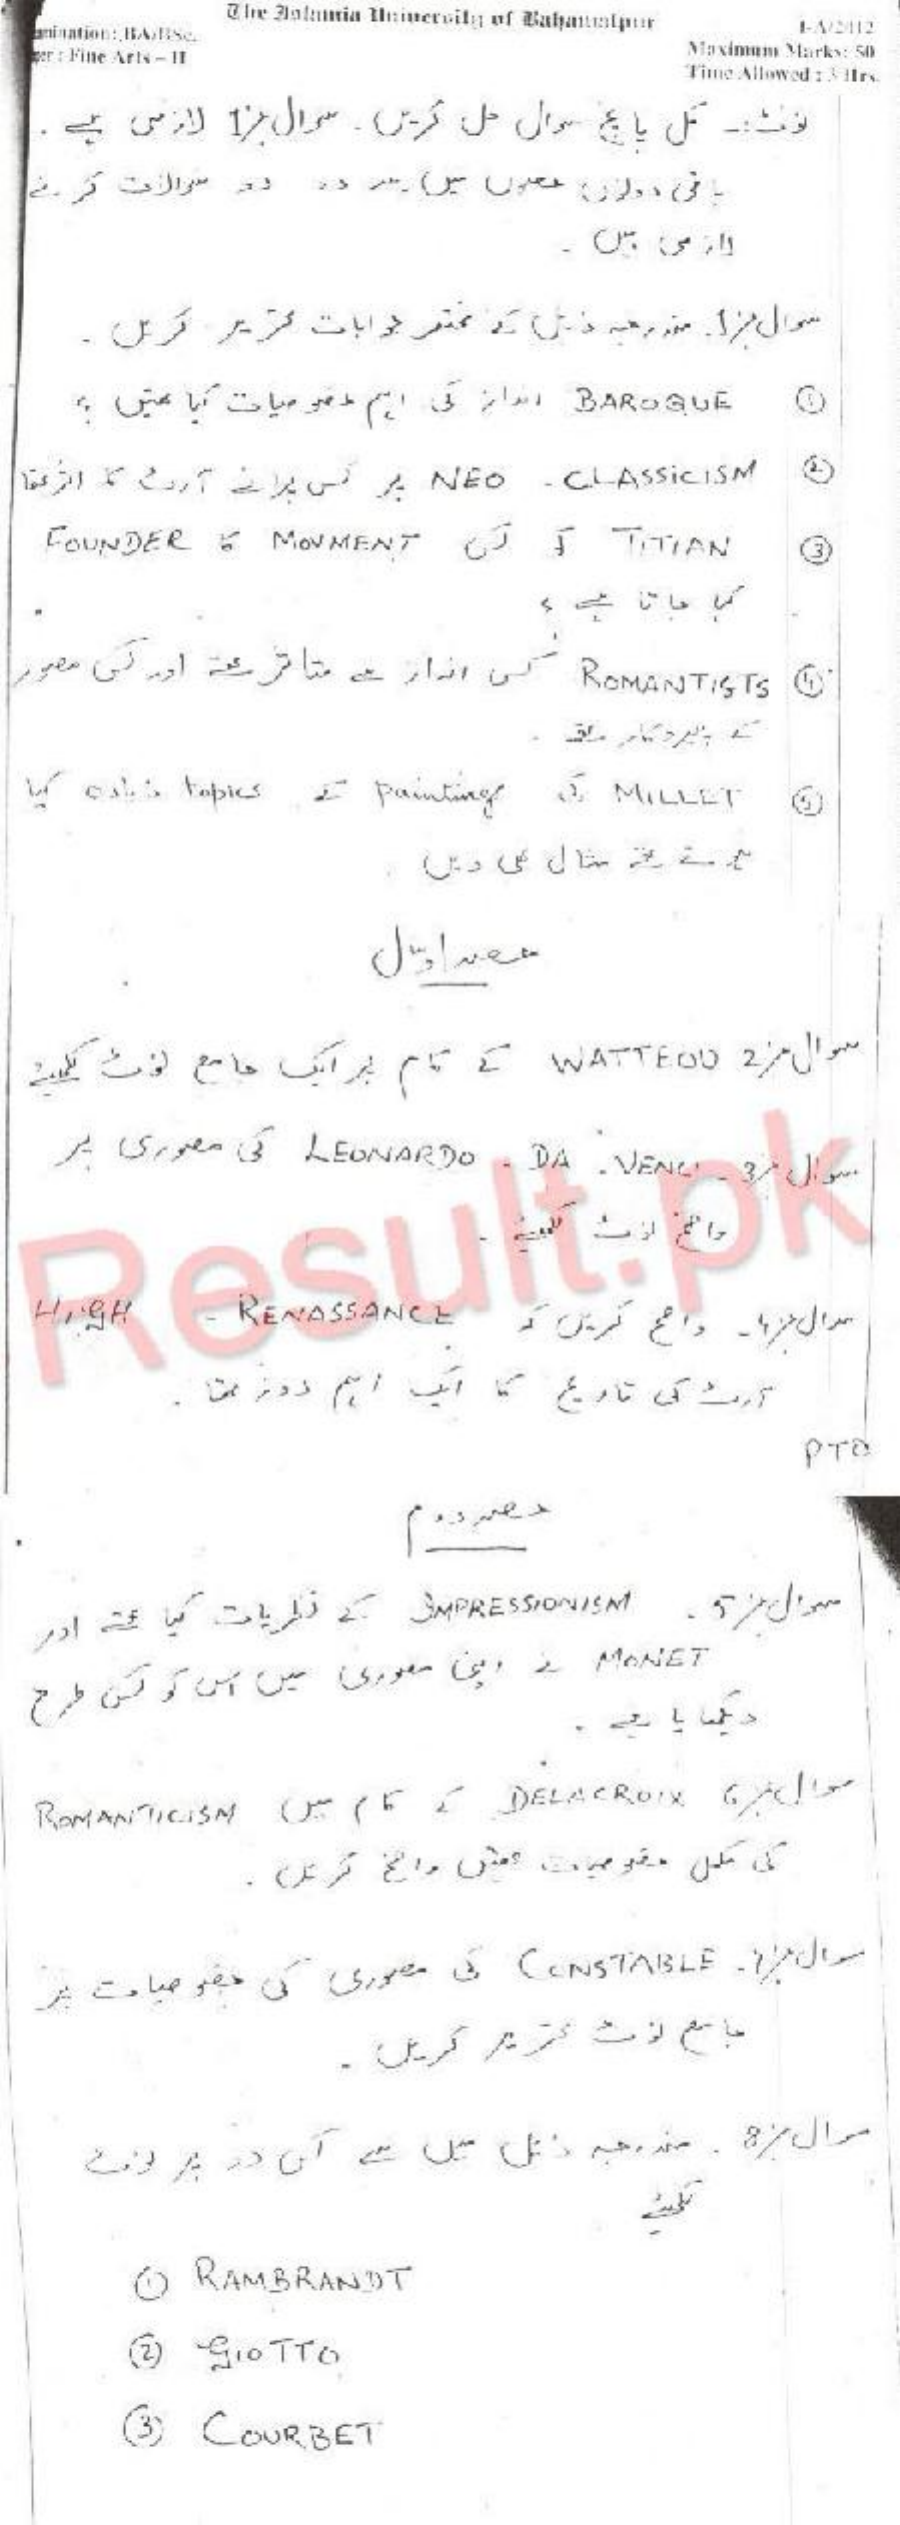 The Islamia University of Bahawalpur
I-A/2012
Examination: BA/BSc.
Maximum Marks: 50
Paper: Fine Arts – II
Time Allowed: 3 Hrs.
نوٹ:۔ کل پانچ سوال حل کریں۔ سوال نمبر 1 لازمی ہے۔
باقی دونوں حصوں میں سے دو دو سوالات کرنے
لازمی ہیں۔
سوال نمبر 1۔ مندرجہ ذیل کے مختصر جوابات تحریر کریں۔
① BAROQUE انداز کی اہم خصوصیات کیا تھیں؟
② NEO - CLASSICISM پر کس پرانے آرٹ کا اثر تھا
③ TITIAN کو کس MOVMENT کا FOUNDER
کہا جاتا ہے؟
④ ROMANTISTS کس انداز سے متاثر تھے اور کس مصور
کے پیروکار تھے۔
⑤ MILLET کی painting کے topics زیادہ کیا
ہوتے تھے مثال بھی دیں۔
حصہ اوّل
سوال نمبر 2 WATTEOU کے کام پر ایک جامع نوٹ لکھیئے
سوال نمبر 3۔ LEONARDO - DA - VENCI کی مصوری پر
واضح نوٹ لکھیئے۔
سوال نمبر 4۔ واضح کریں کہ HIGH - RENASSANCE
آرٹ کی تاریخ کا ایک اہم دور تھا۔
PTO
Result.pk
حصہ دوم
سوال نمبر 5۔ IMPRESSIONISM کے نظریات کیا تھے اور
MONET نے اپنی مصوری میں اس کو کس طرح
دیکھایا ہے۔
سوال نمبر 6 DELACROIX کے کام میں ROMANTICISM
کی مکمل خصوصیات تھیں واضح کریں۔
سوال نمبر 7۔ CONSTABLE کی مصوری کی خصوصیات پر
جامع نوٹ تحریر کریں۔
سوال نمبر 8۔ مندرجہ ذیل میں سے کسی دو پر نوٹ
لکھیئے
① RAMBRANDT
② GIOTTO
③ COURBET